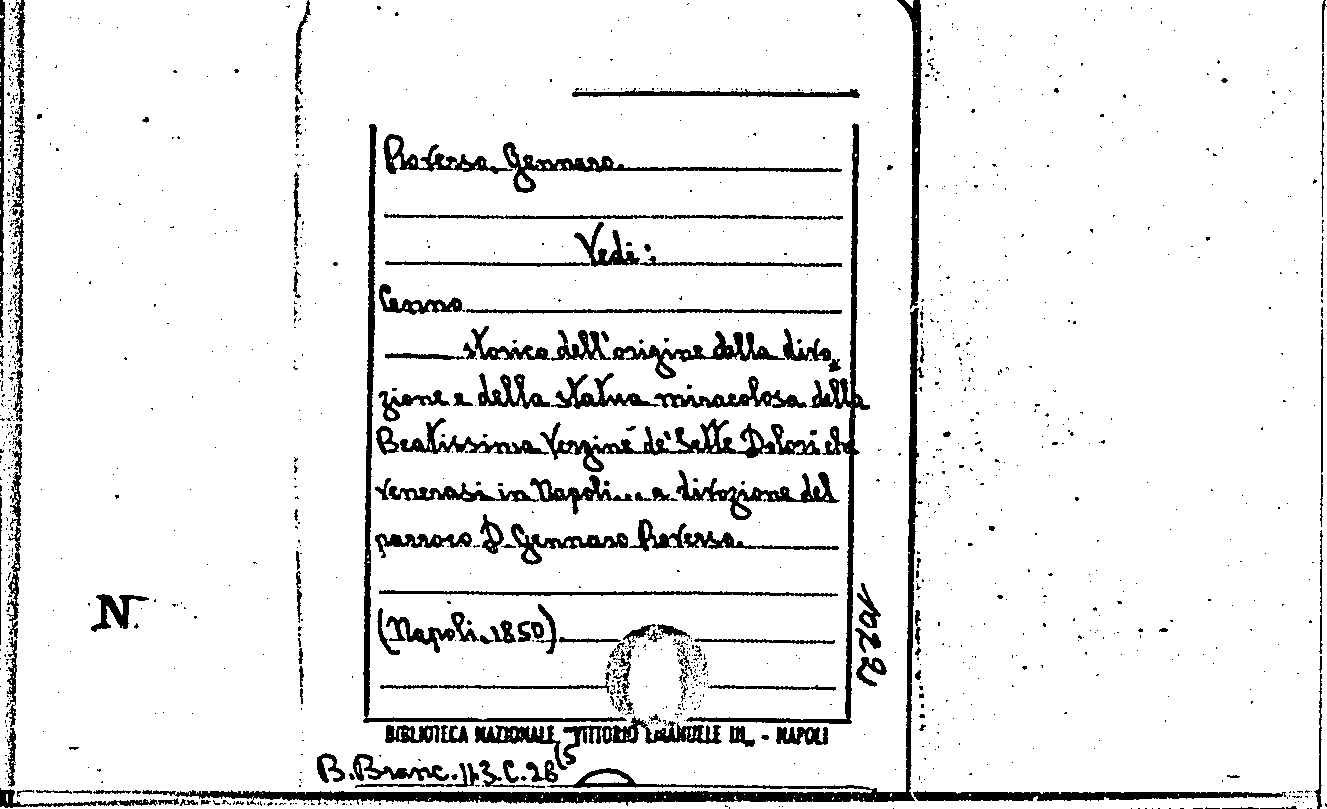 Roversa, Gennaro.
Vedi:
Cenno
storico dell'origine della divo
zione e della statua miracolosa della
Beatissima Vergine de' Sette Dolori che
venerasi in Napoli... a divozione del
parroco D. Gennaro Roversa.
(Napoli, 1850).
10221
BIBLIOTECA NAZIONALE "VITTORIO EMANUELE III" - NAPOLI
B. Branc. 113. C. 28 (5
N.